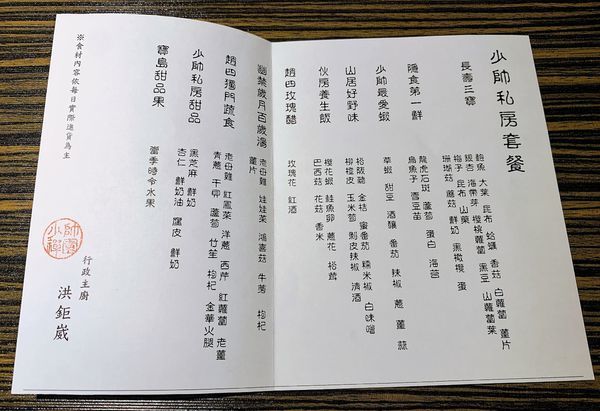 少帥私房套餐
長壽三寶
鮑魚 大葉 昆布 蛤蠣 香菇 白蘿蔔 薑片
銀杏 海帶芽 櫻桃蘿蔔 黑豆 山蘿蔔葉
梅子 昆布 山藥
珊瑚菇 蘑菇 鮮奶 黑橄欖 蛋
隱食第一鮮
龍虎石斑 蘆筍 蛋白
烏魚子 雪豆苗
少帥最愛蝦
草蝦 甜豆 酒釀 番茄 辣椒 蔥 薑 蒜
山居好野味
松阪豬 金桔 蜜番茄 糯米椒 白味噌
柳橙皮 玉米筍 剝皮辣椒 清酒
伙房養生飯
櫻花蝦 鮭魚卵 蔥花 松茸
巴西菇 花菇 香米
趙四玫瑰醋
玫瑰花 紅酒
幽禁歲月百歲湯
老母雞 娃娃菜 鴻喜菇 牛蒡 枸杞
薑片
趙四獨門蔬食
老母雞 紅鳳菜 洋蔥 西芹 紅蘿蔔 老薑
青蔥 干貝 蘆筍 竹笙 枸杞 金華火腿
少帥私房甜品
黑芝麻 鮮奶
杏仁 鮮奶油 腐皮 鮮奶
寶島甜品果
當季時令水果
※食材內容依每日實際進貨為主
少帥禪園
行政主廚
洪鉅崴